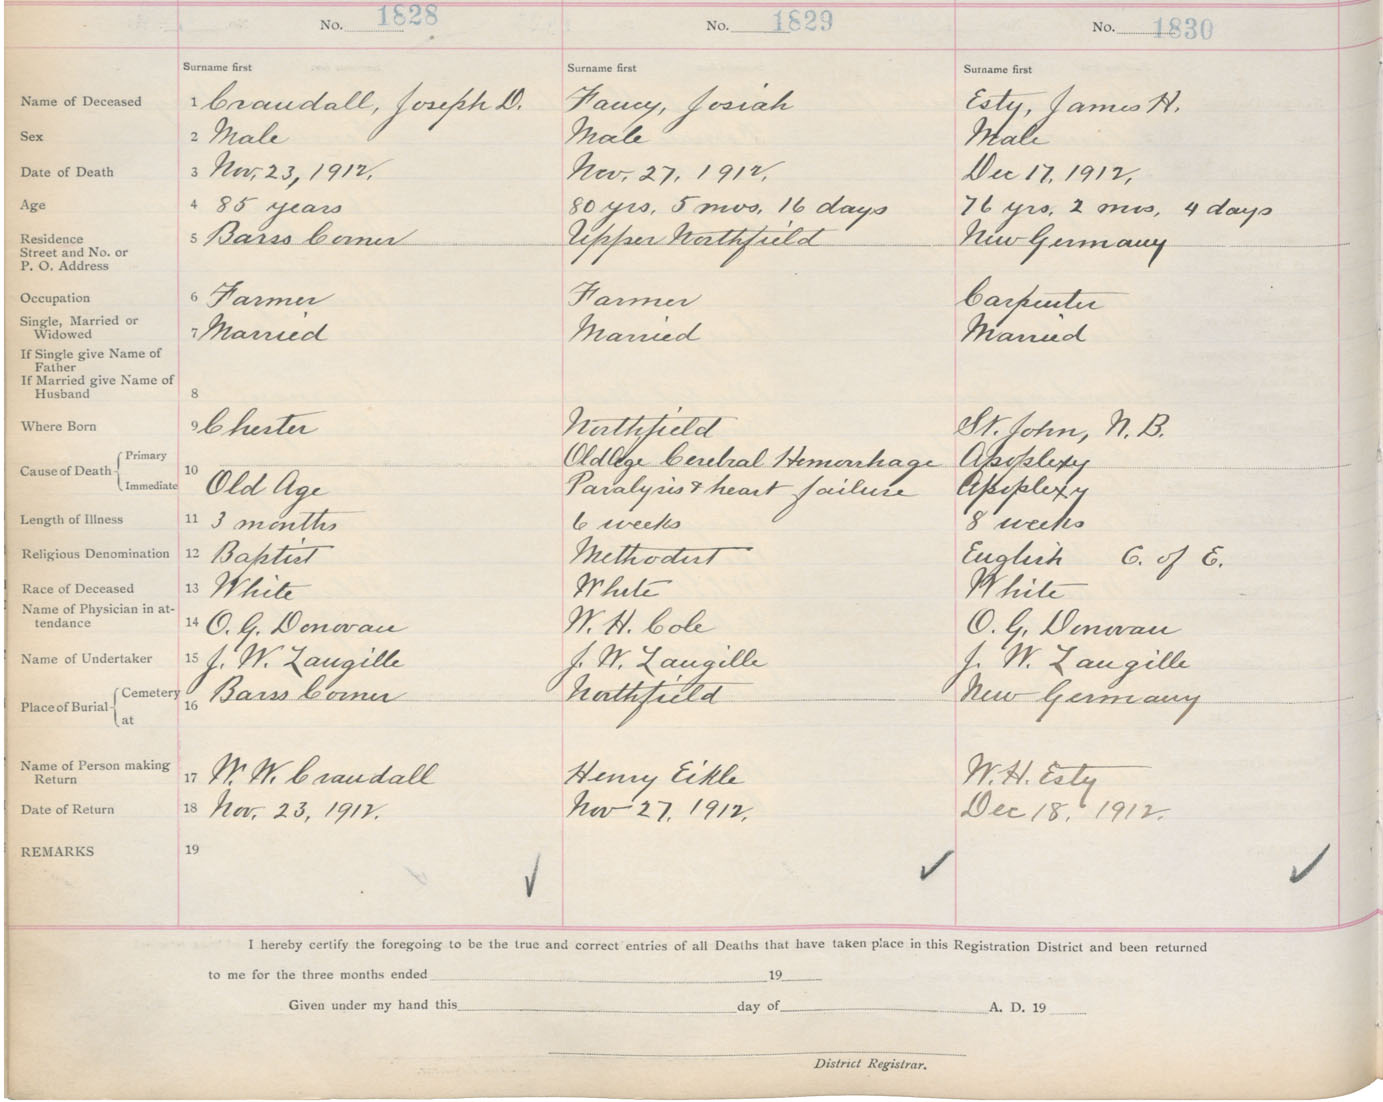 No. 1828 No. 1829 No. 1830
Surname first Surname first Surname first
Name of Deceased 1 Crandall, Joseph D. Fancy, Josiah Esty, James H.
Sex 2 Male Male Male
Date of Death 3 Nov. 23, 1912. Nov. 27, 1912. Dec 17, 1912,
Age 4 85 years 80 yrs. 5 mos. 16 days 76 yrs. 2 mos. 4 days
Residence 5 Barss Corner Upper Northfield New Germany
Street and No. or
P. O. Address
Occupation 6 Farmer Farmer Carpenter
Single, Married or
Widowed 7 Married Married Married
If Single give Name of
Father
If Married give Name of
Husband 8
Where Born 9 Chester Northfield St. John, N. B.
Primary Old Age Cerebral Hemorrhage Apoplexy
Cause of Death 10
Immediate Old Age Paralysis & heart failure Apoplexy
Length of Illness 11 3 months 6 weeks 8 weeks
Religious Denomination 12 Baptist Methodist English C. of E.
Race of Deceased 13 White White White
Name of Physician in at-
tendance 14 O. G. Donovan W. H. Cole O. G. Donovan
Name of Undertaker 15 J. W. Zaugille J. W. Zaugille J. W. Zaugille
Cemetery Barss Corner Northfield New Germany
Place of Burial 16
at
Name of Person making
Return 17 W. W. Crandall Henry Eikle W. H. Esty
Date of Return 18 Nov. 23, 1912. Nov 27, 1912. Dec 18, 1912.
REMARKS 19
I hereby certify the foregoing to be the true and correct entries of all Deaths that have taken place in this Registration District and been returned
to me for the three months ended 19
Given under my hand this day of A. D. 19
District Registrar.